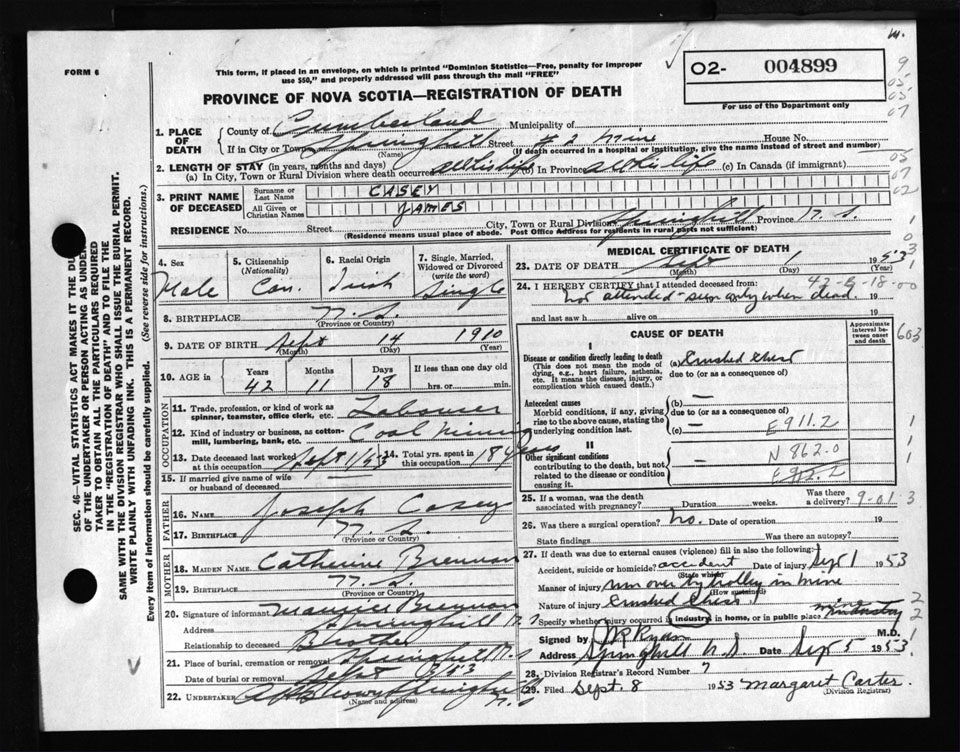 FORM 6
This form, if placed in an envelope, on which is printed "Dominion Statistics—Free, penalty for improper
use $50," and properly addressed will pass through the mail "FREE"
PROVINCE OF NOVA SCOTIA—REGISTRATION OF DEATH
O2- 004899
For use of the Department only
9
05
05
07
1. PLACE OF DEATH
County of Cumberland Municipality of
If in City or Town Springhill Street # 2 Mine House No.
(Name) (If death occurred in a hospital or institution, give the name instead of street and number)
2. LENGTH OF STAY (in years, months and days)
(a) In City, Town or Rural Division where death occurred all his life (b) In Province all his life (c) In Canada (if immigrant)
3. PRINT NAME OF DECEASED
Surname or Last Name CASEY
All Given or Christian Names JAMES
RESIDENCE No. Street City, Town or Rural Division Springhill Province N.S.
(Residence means usual place of abode. Post Office Address for residents in rural parts not sufficient)
4. Sex
Male
5. Citizenship (Nationality)
Can.
6. Racial Origin
Irish
7. Single, Married, Widowed or Divorced (write the word)
Single
8. BIRTHPLACE N.S.
(Province or Country)
9. DATE OF BIRTH Sept 14 1910
(Month) (Day) (Year)
10. AGE in Years Months Days If less than one day
42 11 18 hrs. or min.
OCCUPATION
11. Trade, profession, or kind of work as spinner, teamster, office clerk, etc. Labourer
12. Kind of industry or business, as cotton-mill, lumbering, bank, etc. Coal Mining
13. Date deceased last worked at this occupation Sept 1/53
14. Total yrs. spent in this occupation 18 years
15. If married give name of wife or husband of deceased
FATHER
16. NAME Joseph Casey
17. BIRTHPLACE N.S.
(Province or Country)
MOTHER
18. MAIDEN NAME Catherine Brennan
19. BIRTHPLACE N.S.
(Province or Country)
20. Signature of informant Maurice Brennan
Address Springhill N.S.
Relationship to deceased Brother
21. Place of burial, cremation or removal Springhill N.S.
Date of burial or removal Sept
22. UNDERTAKER Brown Springhill N.S.
(Name and address)
MEDICAL CERTIFICATE OF DEATH
23. DATE OF DEATH 1 1953
(Month) (Day) (Year)
24. I HEREBY CERTIFY that I attended deceased from:
Not attended - seen only when dead. 19
and last saw h alive on 19
CAUSE OF DEATH
Approximate interval between onset and death
603
I
Disease or condition directly leading to death
(This does not mean the mode of dying, e.g., heart failure, asthenia, etc. It means the disease, injury, or complication which caused death.)
(a) Crushed chest
due to (or as a consequence of)
Antecedent causes
Morbid conditions, if any, giving rise to the above cause, stating the underlying condition last.
(b) —
due to (or as a consequence of)
(c) — E911.2
II
Other significant conditions
contributing to the death, but not related to the disease or condition causing it.
N 862.0
25. If a woman, was the death associated with pregnancy? Duration weeks. Was there a delivery? 9-01 3
26. Was there a surgical operation? No. Date of operation 19
State findings Was there an autopsy?
27. If death was due to external causes (violence) fill in also the following:
Accident, suicide or homicide? accident Date of injury Sept 1 1953
(State which)
Manner of injury run over by trolley in mine
(How sustained)
Nature of injury Crushed chest
Specify whether injury occurred in industry, in home, or in public place
Signed by Ryan M.D.
Address Springhill N.S. Date Sep 5 1953
28. Division Registrar's Record Number 7
29. Filed Sept. 8 1953 Margaret Carter
(Division Registrar)
SEC. 46—VITAL STATISTICS ACT MAKES IT THE
OF THE UNDERTAKER OR PERSON ACTING AS UNDER-
TAKER TO OBTAIN ALL THE PARTICULARS REQUIRED
IN THE "REGISTRATION OF DEATH" AND TO FILE THE
SAME WITH THE DIVISION REGISTRAR WHO SHALL ISSUE THE BURIAL PERMIT.
WRITE PLAINLY WITH UNFADING INK. THIS IS A PERMANENT RECORD.
Every item of information should be carefully supplied. (See reverse side for instructions.)